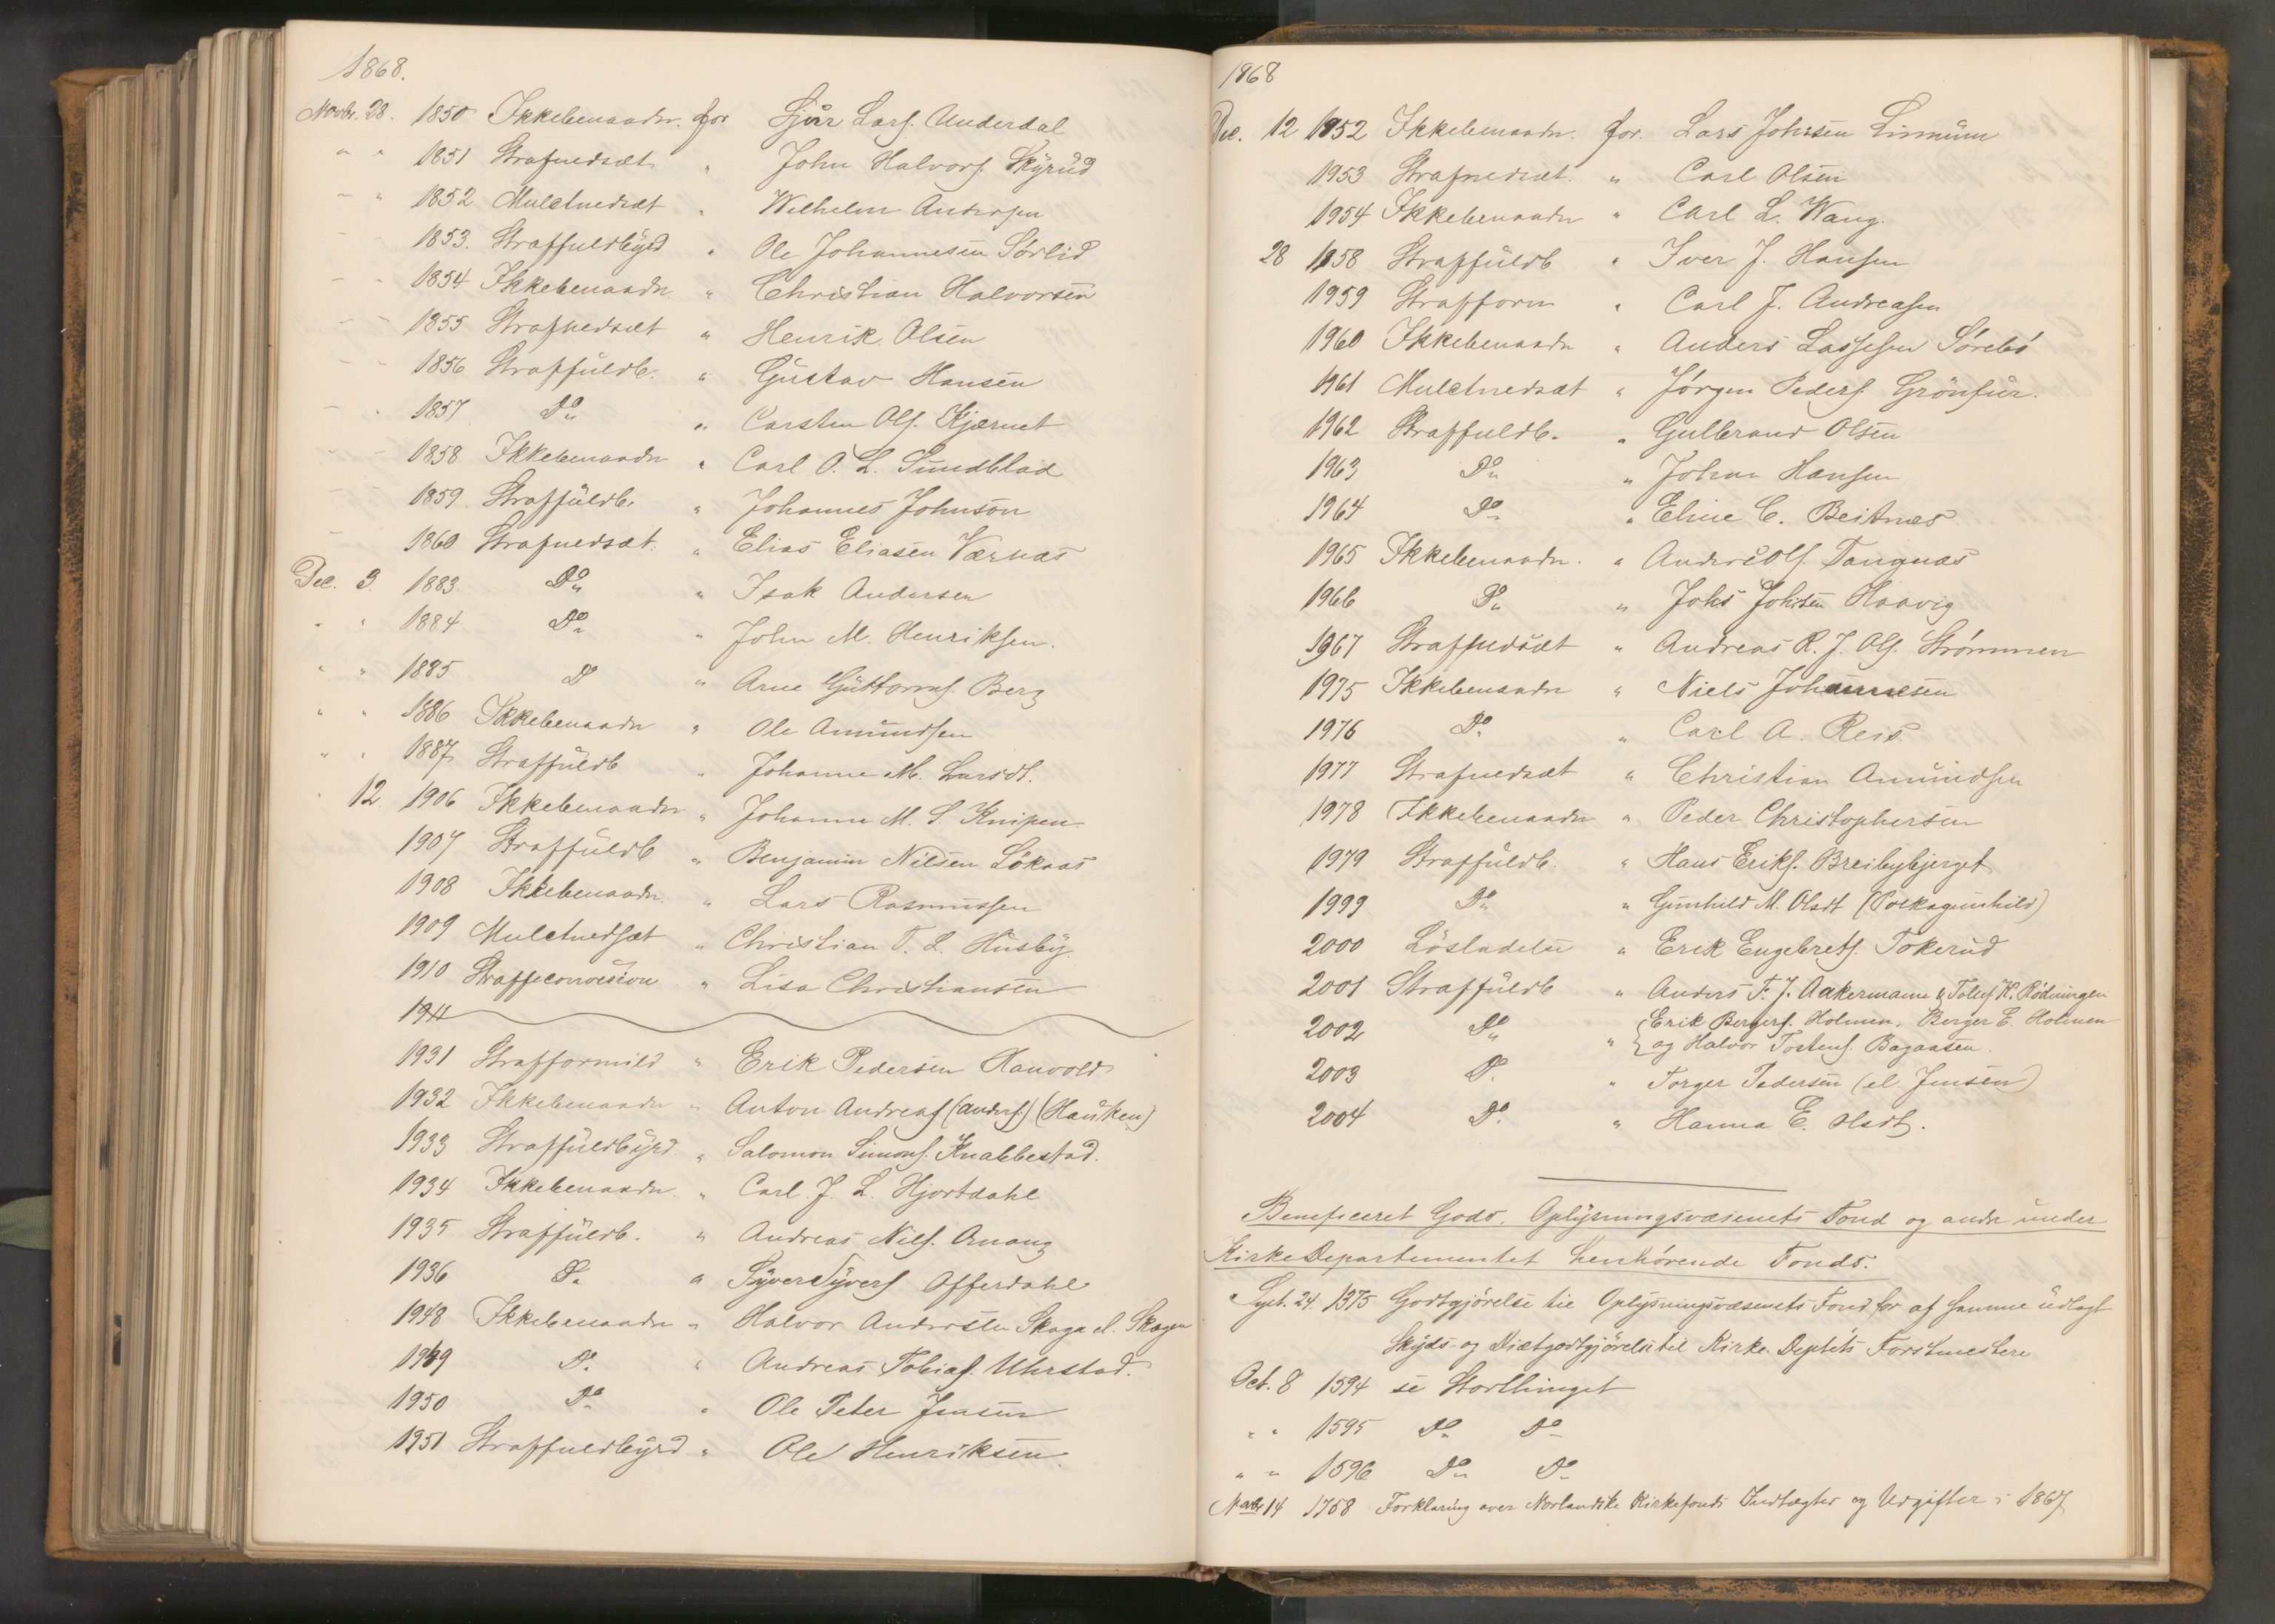 1868.
Novbr. 28. 1850 Ikkebenaadn. for Sjur Lars. Underdal
" " 1851 Strafnedsæt " John Halvors. Skyrud
" " 1852 Mulctnedsæt " Wilhelm Andersen
" " 1853. Straffuldbyrd " Ole Johannesen Sörlid
" " 1854 Ikkebenaadn " Christian Halvorsen
" " 1855 Strafnedsæt " Henrik Olsen
" " 1856 Straffuldb. " Gustav Hansen
" " 1857 Do " Carsten Ols. Kjærnet
" " 1858 Ikkebenaadn " Carl O. L. Sundblad
" " 1859. Straffuldb. " Johannes Johnson
" " 1860 Strafnedsæt. " Elias Eliasen Værnæs
Dec. 3. 1883 Do " Isak Andersen
" " 1884 Do " John M. Henriksen.
" " 1885 D " Arne Guttorms. Berg
" " 1886 Ikkebenaadn " Ole Amundsen
" " 1887 Straffuldb " Johanne M. Larsdt.
" 12. 1906 Ikkebenaadn " Johanne M. S. Knipen
1907 Straffuldb " Benjamin Nilsen Lökaas
1908 Ikkebenaadn. " Lars Rasmussen
1909 Mulctnedsæt " Christian T. L. Husby.
1910 Straffeconvesion " Lisa Christiansen
1911
1931 Strafformild " Erik Pedersen Hanvold
1932 Ikkebenaadn " Anton Andreas (Anders.) (Hauken)
1933 Straffuldbyrd " Salomon Simons. Knabbestad.
1934 Ikkebenaadn. " Carl J. L. Hjortdahl
1935 Straffuldb. " Andreas Nils. Onang
1936 Do " Syver Syvers Offerdahl
1948 Ikkebenaadn " Halvor Andersen Skaga el. Skagen
1949 Do " Andreas Tobias. Uhrstad.
1950 Do " Ole Peter Jensen
1951 Straffuldbyrd " Ole Henriksen.
1868
Dec. 12 1952 Ikkebenaadn. for. Lars Johnsen Linmum
1953 Strafnedsæt. " Carl Olsen
1954 Ikkebenaadn " Carl L. Wang.
28 1958 Straffuldb " Iver J. Hansen
1959 Strafform " Carl J. Andreasen
1960 Ikkebenaadn " Anders Lassesen Sörebö
1961 Mulctnedsæt " Jörgen Peders. Grönfur.
1962 Straffuldb. " Gulbrand Olsen
1963 Do " Johan Hansen
1964 Do " Eline C. Beitnæs
1965 Ikkebenaadn. " Anders Ols. Tangnæs
1966 Do " Johs Johnsen Haavig
1967 Straffnedsæt " Andreas R. J. Ols. Strömmen
1975 Ikkebenaadn " Niels Johannesen
1976 Do " Carl A. Reis.
1977 Strafnedsæt " Christian Amundsen
1978 Ikkebenaadn " Peder Christophersen
1979 Straffuldb. " Hans Eriks. Breibybjerget
1999 Do " Gunhild M. Olsdt (Polkagunhild)
2000 Lösladelse " Erik Engebrets. Tokerud
2001 Straffuldb " Anders F. J. Aakermann & Tollef K. Rödningen
2002 Do " Erik Bergers. Holmen, Berger E. Holmen
og Halvor Tostens. Bagaasen.
2003 Do " Torger Pedersen (el. Jensen)
2004 Do " Hanna E. Olsdt.
Beneficeret Gods, Oplysningsvæsenets Fond og andre under
Kirke Departementet henhörende Fonds.
Sept. 24. 1375 Godtgjörelse til Oplysningsvæsenets Fond for af samme udlagt
Skyds- og Diætgodtgjörelse til Kirke Deptets Forstmestere
Oct. 8 1594 se Storthinget
" " 1595 Do Do
" " 1596 Do Do
Novbr 14 1758 Forklaring over Norlandske Kirkefonds Indtægter og Udgifter i 1867